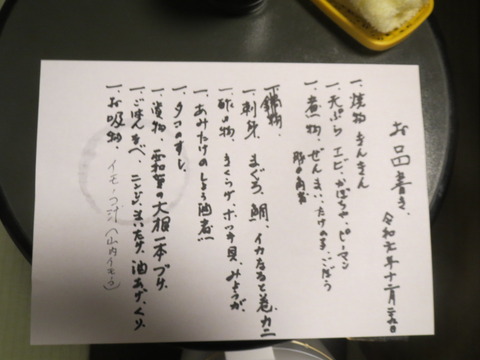 お品書き、令和元年十二月二九日
一、焼物 きんきん
一、天ぷら エビ、かぼちゃ、ピーマン
一、煮物、ぜんまい、たけのこ、ごぼう
豚の角煮
一、鍋物、
一、刺身 まぐろ、鯛、イカなると巻、カニ
一、酢の物、きくらげ、ホッキ貝、みょうが、
一、あみたけのしょう油煮
一、タコのすし
一、漬物 雪菜の大根一本づけ
一、ごはんなべ、ニンジン、しいたけ、油あげ、くり、
一、お吸物、イモノコ汁(山内イモノコ)